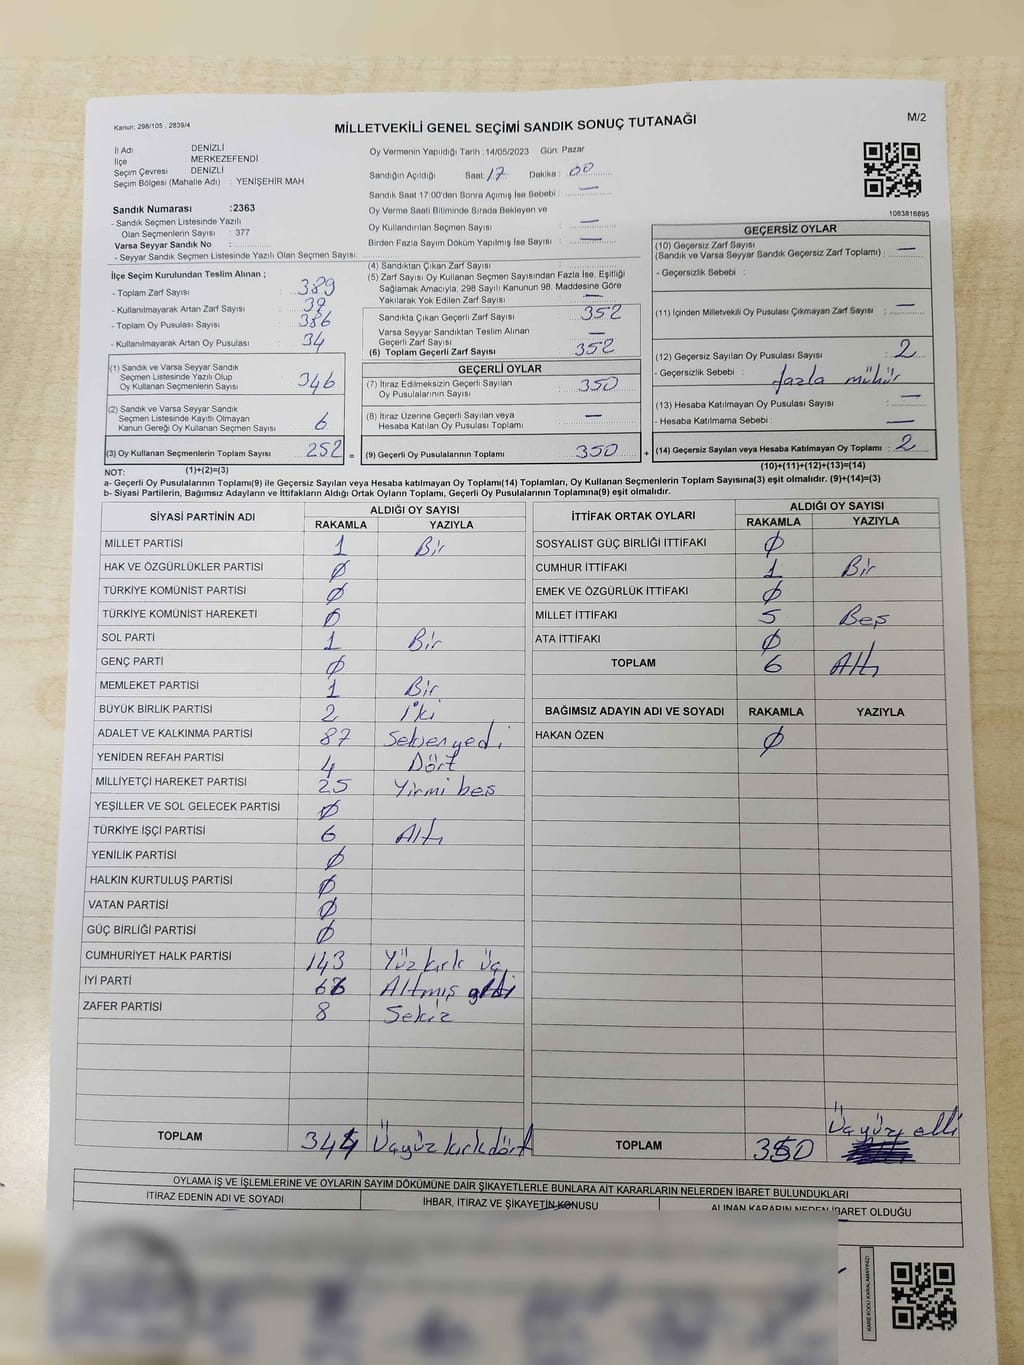 Kanun: 298/105 , 2839/4
MİLLETVEKİLİ GENEL SEÇİMİ SANDIK SONUÇ TUTANAĞI
M/2
İl Adı : DENİZLİ
İlçe : MERKEZEFENDİ
Seçim Çevresi : DENİZLİ
Seçim Bölgesi (Mahalle Adı) : YENİŞEHİR MAH
Sandık Numarası :2363
- Sandık Seçmen Listesinde Yazılı
Olan Seçmenlerin Sayısı : 377
Varsa Seyyar Sandık No :
- Seyyar Sandık Seçmen Listesinde Yazılı Olan Seçmen Sayısı:
Oy Vermenin Yapıldığı Tarih :14/05/2023 Gün: Pazar
Sandığın Açıldığı Saat: 17 Dakika : 00
Sandık Saat 17:00'den Sonra Açımış İse Sebebi : —
Oy Verme Saati Bitiminde Sırada Bekleyen ve
Oy Kullandırılan Seçmen Sayısı : —
Birden Fazla Sayım Döküm Yapılmış İse Sayısı : —
1083816895
İlçe Seçim Kurulundan Teslim Alınan ;
- Toplam Zarf Sayısı : 389
- Kullanılmayarak Artan Zarf Sayısı : 39
- Toplam Oy Pusulası Sayısı : 386
- Kullanılmayarak Artan Oy Pusulası : 34
(1) Sandık ve Varsa Seyyar Sandık
Seçmen Listesinde Yazılı Olup
Oy Kullanan Seçmenlerin Sayısı : 346
(2) Sandık ve Varsa Seyyar Sandık
Seçmen Listesinde Kayıtlı Olmayan
Kanun Gereği Oy Kullanan Seçmen Sayısı : 6
(3) Oy Kullanan Seçmenlerin Toplam Sayısı : 252 =
(1)+(2)=(3)
(4) Sandıktan Çıkan Zarf Sayısı :
(5) Zarf Sayısı Oy Kullanan Seçmen Sayısından Fazla İse, Eşitliği
Sağlamak Amacıyla, 298 Sayılı Kanunun 98. Maddesine Göre
Yakılarak Yok Edilen Zarf Sayısı : —
Sandıkta Çıkan Geçerli Zarf Sayısı : 352
Varsa Seyyar Sandıktan Teslim Alınan
Geçerli Zarf Sayısı : —
(6) Toplam Geçerli Zarf Sayısı : 352
GEÇERLİ OYLAR
(7) İtiraz Edilmeksizin Geçerli Sayılan
Oy Pusulalarının Sayısı : 350
(8) İtiraz Üzerine Geçerli Sayılan veya
Hesaba Katılan Oy Pusulası Toplamı : —
(9) Geçerli Oy Pusulalarının Toplamı : 350 +
GEÇERSİZ OYLAR
(10) Geçersiz Zarf Sayısı
(Sandık ve Varsa Seyyar Sandık Geçersiz Zarf Toplamı) : —
- Geçersizlik Sebebi :
(11) İçinden Milletvekili Oy Pusulası Çıkmayan Zarf Sayısı : —
(12) Geçersiz Sayılan Oy Pusulası Sayısı : 2
- Geçersizlik Sebebi : fazla mühür
(13) Hesaba Katılmayan Oy Pusulası Sayısı : —
- Hesaba Katılmama Sebebi : —
(14) Geçersiz Sayılan veya Hesaba Katılmayan Oy Toplamı : 2
(10)+(11)+(12)+(13)=(14)
NOT:
a- Geçerli Oy Pusulalarının Toplamı(9) ile Geçersiz Sayılan veya Hesaba Katılmayan Oy Toplamı(14) Toplamları, Oy Kullanan Seçmenlerin Toplam Sayısına(3) eşit olmalıdır. (9)+(14)=(3)
b- Siyasi Partilerin, Bağımsız Adayların ve İttifakların Aldığı Ortak Oyların Toplamı, Geçerli Oy Pusulalarının Toplamına(9) eşit olmalıdır.
SİYASİ PARTİNİN ADI ALDIĞI OY SAYISI
RAKAMLA YAZIYLA
MİLLET PARTİSİ 1 Bir
HAK VE ÖZGÜRLÜKLER PARTİSİ 0
TÜRKİYE KOMÜNİST PARTİSİ 0
TÜRKİYE KOMÜNİST HAREKETİ 0
SOL PARTİ 1 Bir
GENÇ PARTİ 0
MEMLEKET PARTİSİ 1 Bir
BÜYÜK BİRLİK PARTİSİ 2 İki
ADALET VE KALKINMA PARTİSİ 87 Seksenyedi
YENİDEN REFAH PARTİSİ 4 Dört
MİLLİYETÇİ HAREKET PARTİSİ 25 Yirmi beş
YEŞİLLER VE SOL GELECEK PARTİSİ 0
TÜRKİYE İŞÇİ PARTİSİ 6 Altı
YENİLİK PARTİSİ 0
HALKIN KURTULUŞ PARTİSİ 0
VATAN PARTİSİ 0
GÜÇ BİRLİĞİ PARTİSİ 0
CUMHURİYET HALK PARTİSİ 143 Yüz kırk üç
İYİ PARTİ Altmış
ZAFER PARTİSİ 8 Sekiz
TOPLAM 344 Üçyüz kırk dört
İTTİFAK ORTAK OYLARI ALDIĞI OY SAYISI
RAKAMLA YAZIYLA
SOSYALIST GÜÇ BİRLİĞİ İTTİFAKI 0
CUMHUR İTTİFAKI 1 Bir
EMEK VE ÖZGÜRLÜK İTTİFAKI 0
MİLLET İTTİFAKI 5 Beş
ATA İTTİFAKI 0
TOPLAM 6 Altı
BAĞIMSIZ ADAYIN ADI VE SOYADI RAKAMLA YAZIYLA
HAKAN ÖZEN 0
TOPLAM 350 Üçyüz elli
OYLAMA İŞ VE İŞLEMLERİNE VE OYLARIN SAYIM DÖKÜMÜNE DAİR ŞİKAYETLERLE BUNLARA AİT KARARLARIN NELERDEN İBARET BULUNDUKLARI
İTİRAZ EDENİN ADI VE SOYADI İHBAR, İTİRAZ VE ŞİKAYETİN KONUSU ALINAN KARARIN NEDEN İBARET OLDUĞU
KARE KODU KARALAMAYINIZ!